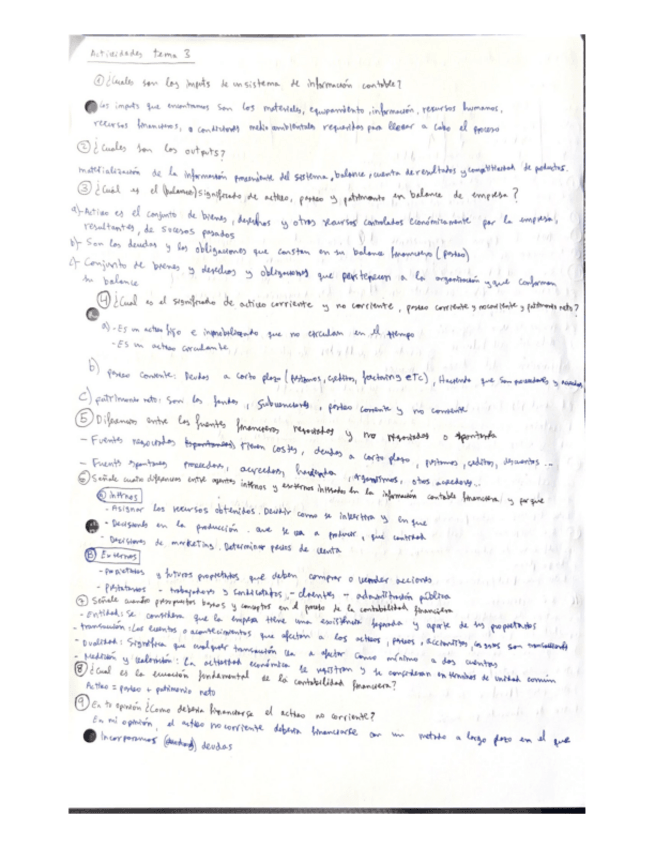 Actividades tema 3
① ¿Cuales son los inputs de un sistema de información contable?
Los inputs que encontramos son los materiales, equipamiento, información, recursos humanos,
recursos financieros, o condiciones medio ambientales requeridos para llevar a cabo el proceso
② ¿Cuales son los outputs?
materialización de la información proveniente del sistema, balance, cuenta de resultados y de productos.
③ ¿Cuál es el (balance) significado de activo, pasivo y patrimonio en balance de empresa?
a)- Activo es el conjunto de bienes, derechos y otros recursos controlados económicamente por la empresa,
resultantes, de sucesos pasados
b)- Son las deudas y las obligaciones que constan en su balance financiero (pasivo)
c)- Conjunto de bienes y derechos y obligaciones que pertenecen a la organización y que conforman
su balance
④ ¿Cual es el significado de activo corriente y no corriente, pasivo corriente y no corriente y patrimonio neto?
a) - Es un activo fijo e inmovilizado que no circulan en el tiempo
- Es un activo circulante
b) pasivo corriente: Deudas a corto plazo (préstamos, créditos, factoring etc), Hacienda que son proveedores y
c) patrimonio neto: Son los fondos, Subvenciones, pasivo corriente y no corriente
⑤ Diferencias entre las fuentes financieras negociadas y no negociadas o espontanea
- Fuentes negociadas tienen costes, deudas a corto plazo, prestamos, creditos, descuentos...
- Fuentes espontaneas proveedores, acreedores, hacienda, organismos, otros acreedores...
⑥ Señale cuatro diferencias entre agentes internos y externos interesados en la información contable financiera y por que
a) Internos
- Asignar los recursos obtenidos. Decidir como se invertira y en que
- Decisiones en la producción. que se va a producir, que cantidad
- Decisiones de marketing. Determinar precios de venta
b) Externos
- propietarios y futuros propietarios que deben comprar o vender acciones
- prestatarios - trabajadores y sindicatos, - clientes - administración pública
⑦ Señale cuatro presupuestos basicos y conceptos en el proceso de la contabilidad financiera
- Entidad: Se considera que la empresa tiene una existencia separada y aparte de sus propietarios
- transacción: Los eventos o acontecimientos que afectan a los activos, pasivos, accionistas, son transacciones
- Dualidad: Significa que cualquier transacción va a afectar como mínimo a dos cuentas
- Medición y valoración: La actividad económica se registran y se consideran en términos de unidad común
⑧ ¿Cual es la ecuación fundamental de la contabilidad financiera?
Activo = pasivo + patrimonio neto
⑨ En tu opinión ¿Como debería financiarse el activo no corriente?
En mi opinión, el activo no corriente debería financiarse con un metodo a largo plazo en el que
Incorporamos deudas